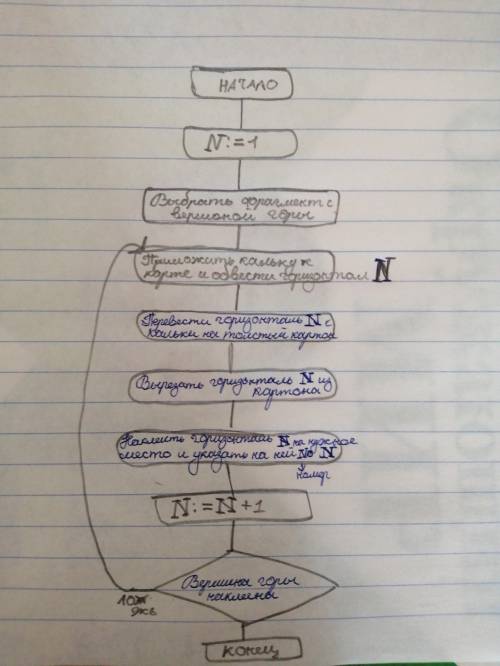 НАЧАЛО
N:=1
Выбрать фрагмент с
вершиной горы
Приложить кальку к
карте и обвести горизонтал N
Перевести горизонталь N с
кальки на толстый картон
Вырезать горизонталь N из
картона
Наклеить горизонталь N на нужное
место и указать на ней № N
номер
N:=N+1
Вершина горы
наклеены
КОНЕЦ